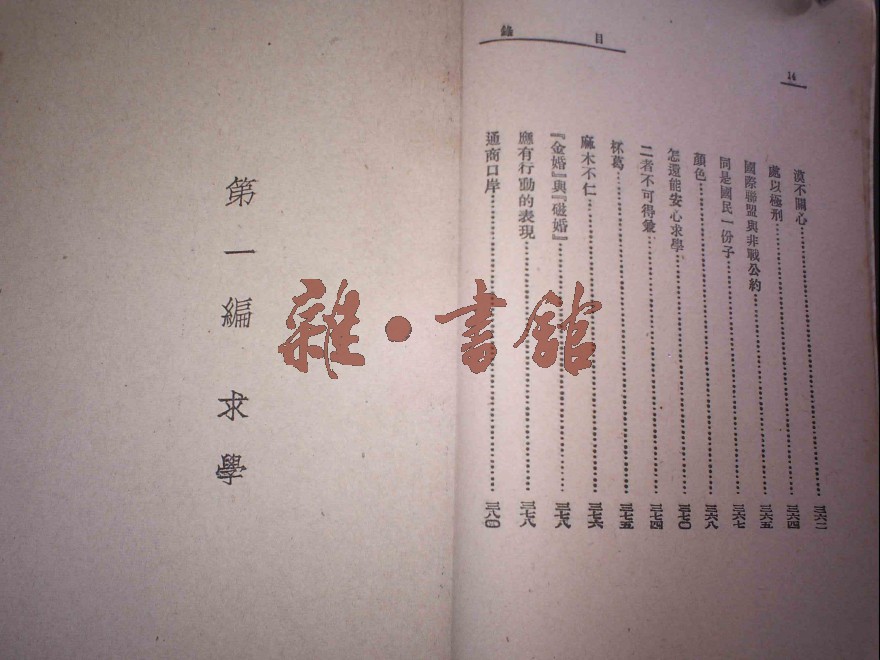 目錄
14
漠不關心……三六二
處以極刑……三六四
國際聯盟與非戰公約……三六五
同是國民一份子……三六七
顏色……三六八
怎還能安心求學……三七〇
二者不可得兼……三七四
杯葛……三七五
麻木不仁……三七六
『金婚』與『磁婚』……三七八
應有行動的表現……三七八
通商口岸……三八〇
第一編 求學
雜·書館